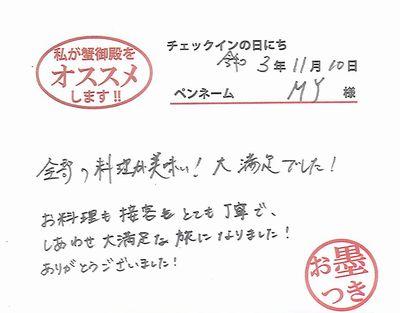 私が蟹御殿を
オススメ
します!!
チェックインの日にち
令和 3年 11月 10日
ペンネーム MY 様
全部の料理が美味い! 大満足でした!
お料理も接客もとても丁寧で、
しあわせ大満足な旅になりました!
ありがとうございました!
お墨
つき